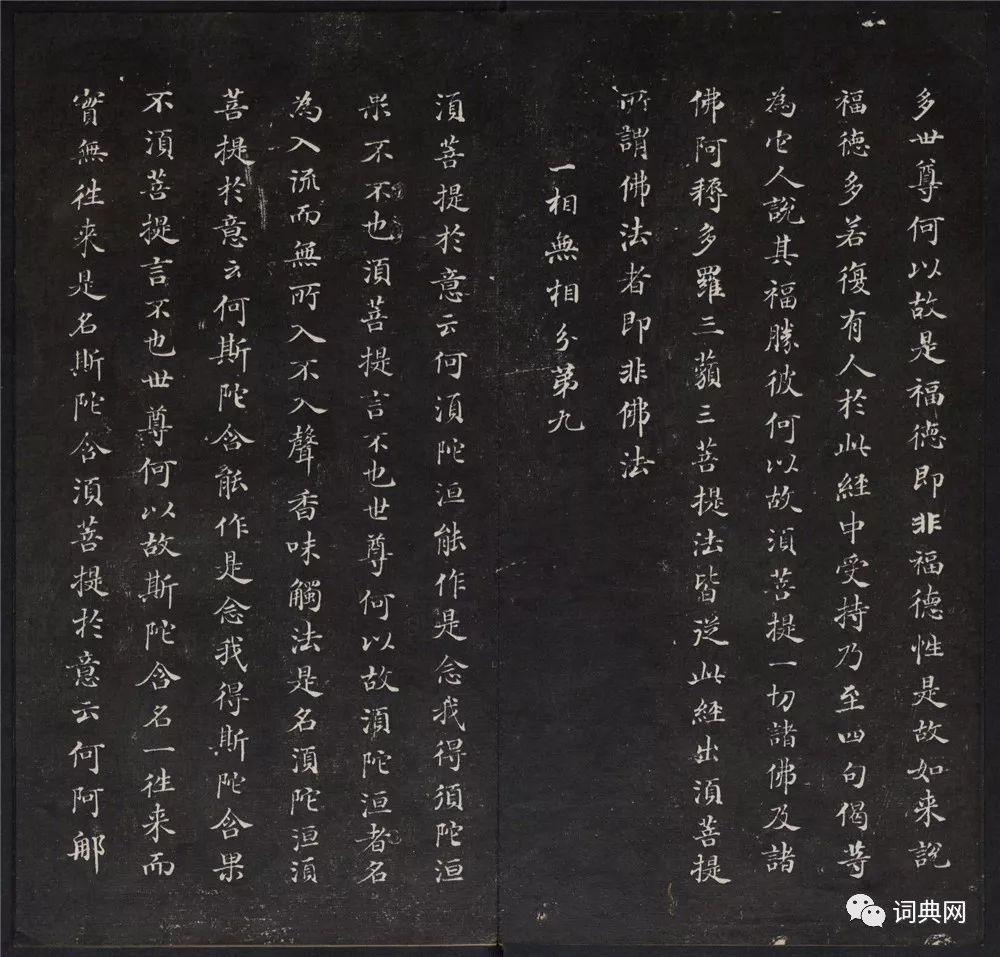 多世尊何以故是福德即非福德性是故如来說
福德多若復有人於此經中受持乃至四句偈等
為它人說其福勝彼何以故須菩提一切諸佛及諸
佛阿耨多羅三藐三菩提法皆從此經出須菩提
所謂佛法者即非佛法
一相無相分第九
須菩提於意云何須陀洹能作是念我得須陀洹
果不不也須菩提言不也世尊何以故須陀洹者名
為入流而無所入不入聲香味觸法是名須陀洹須
菩提於意云何斯陀含能作是念我得斯陀含果
不須菩提言不也世尊何以故斯陀含名一往来而
實無往来是名斯陀含須菩提於意云何阿那
词典网